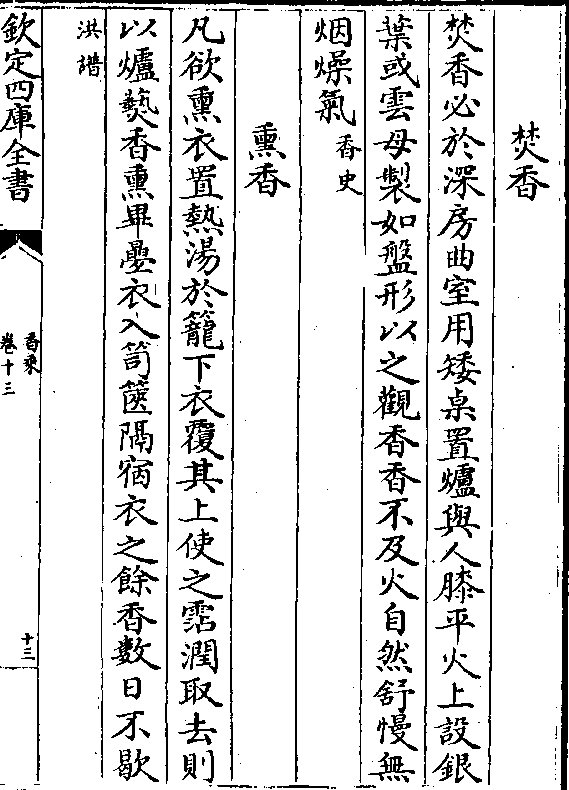 焚香
焚香必於深房曲室用矮桌置爐與人膝平火上設銀
葉或雲母製如盤形以之觀香香不及火自然舒慢無
烟燥氣香史
熏香
凡欲熏衣置熱湯於籠下衣覆其上使之霑潤取去則
以爐爇香熏畢疊衣入笥篋隔宿衣之餘香數日不歇
洪譜
欽定四庫全書
香乘
卷十三
十三